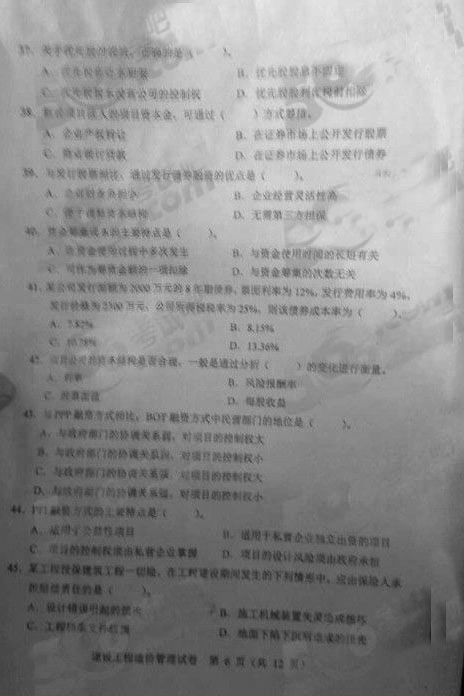 37. 关于优先股的说法,正确的是( )。
B. 优先股股息不固定
C. 优先股股东没有公司的控制权 D. 优先股股利可税前扣除
38. 项目资本金,可通过( )方式筹措。
A. 企业产权转让 B. 在证券市场上公开发行股票
C. 商业银行贷款 D. 在证券市场上公开发行债券
39. 与发行股票相比,通过发行债券融资的优点是( )。
B. 企业经营灵活性高
D. 无需第三方担保
40. 资金筹集成本的主要特点是( )。
A. 在资金使用过程中多次发生 B. 与资金使用时间的长短有关
C. 可作为筹资金额的一项扣除 D. 与资金筹集的次数无关
41. 某公司发行面额为2000万元的8年期债券,票面利率为12%,发行费用率为4%,
发行价格为2300万元,公司所得税税率为25%,则该债券成本率为( )。
A. 7.82% B. 8.15%
C. 10.78% D. 13.36%
42. 项目公司资本结构是否合理,一般是通过分析( )的变化进行衡量。
A. 利率 B. 风险报酬率
C. 股票面值 D. 每股收益
43. 与PPP融资方式相比,BOT融资方式中民营部门的地位是( )。
A. 与政府部门的协调关系弱,对项目的控制权大
B. 与政府部门的协调关系弱,对项目的控制权小
C. 与政府部门的协调关系强,对项目的控制权大
D. 与政府部门的协调关系强,对项目的控制权小
44. PFI融资方式的主要特点是( )。
A. 适用于公益性项目 B. 适用于私营企业独立出资的项目
C. 项目的控制权须由私营企业掌握 D. 项目的设计风险须由政府承担
45. 某工程投保建筑工程一切险,在工程建设期间发生的下列情形中,应由保险人承
担赔偿责任的是( )。
A. 设计错误引起的损失 B. 施工机械装置失灵造成损坏
C. 工程档案文件损毁 D. 地面下陷下沉造成的损失
建设工程造价管理试卷 第 6 页(共 12 页)